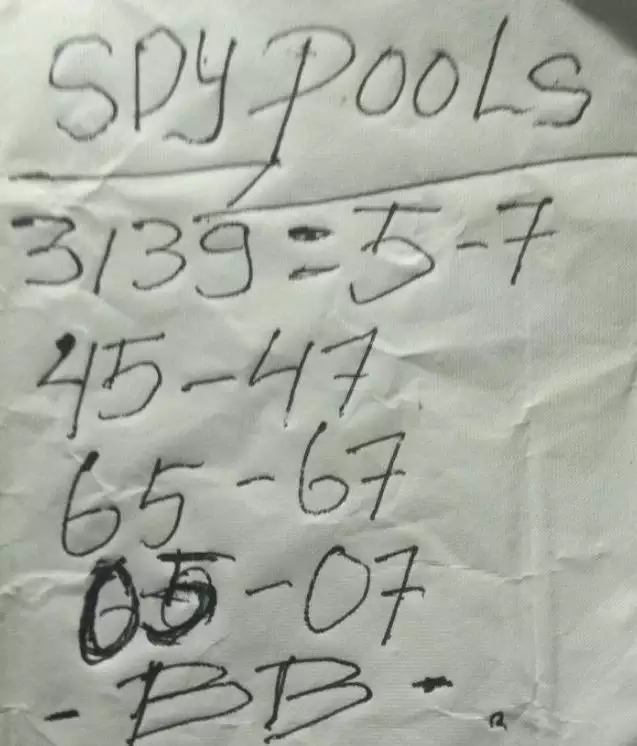 SDY POOLS
3139 = 5-7
45-47
65-67
05-07
- BB -